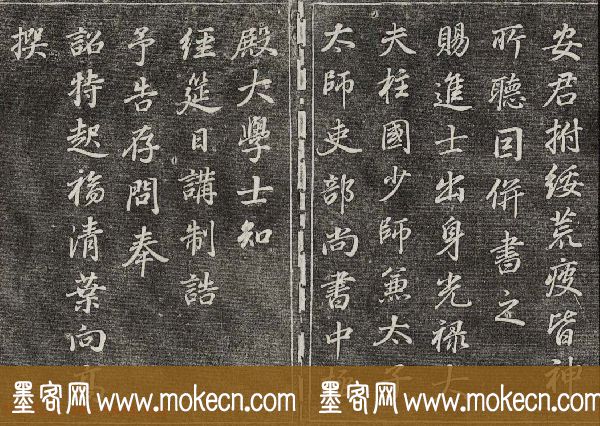 安君拊綏荒疫皆神
所聽囙併書之
賜進士出身光祿大
夫柱國少師兼太子
太師吏部尚書中極
殿大學士知
經筵日講制誥
予告存問奉
詔特起福清葉向高
撰
墨客网 www.mokecn.com 墨客网 www.mokecn.com